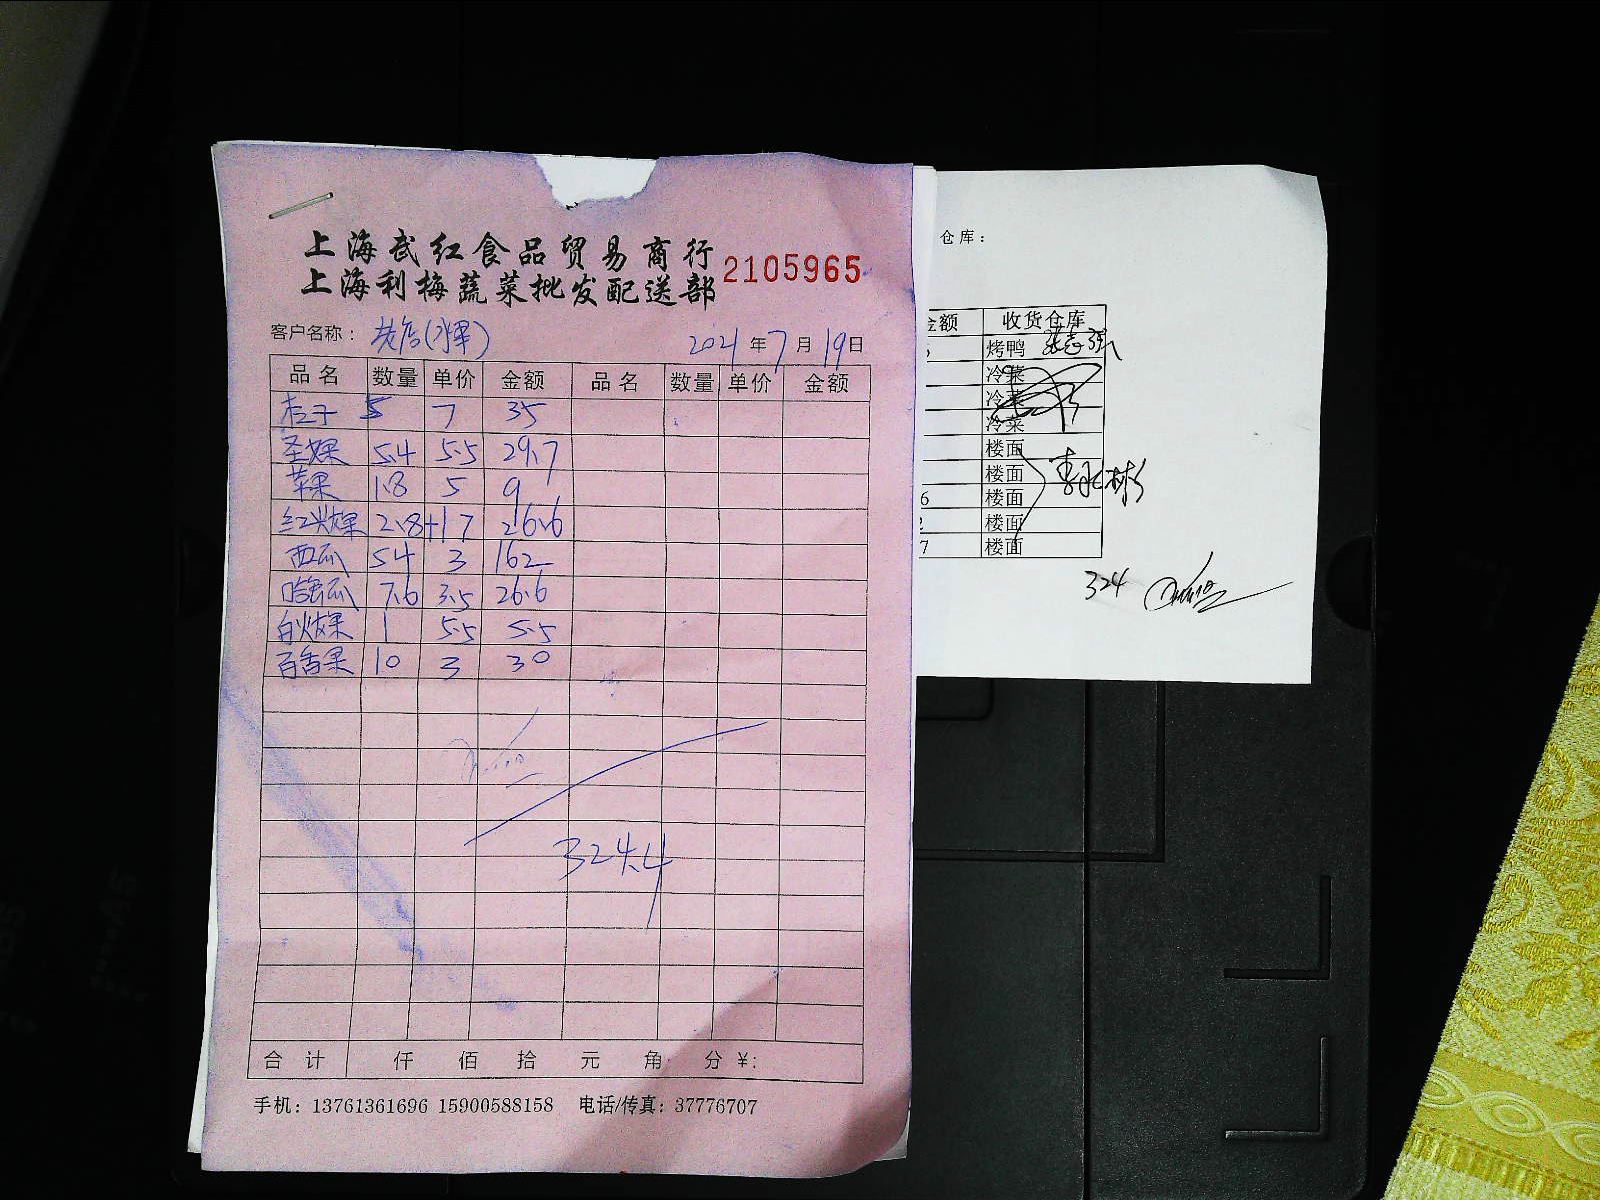 上海武红食品贸易商行
上海利梅蔬菜批发配送部
2105965
客户名称：龙店(水果) 2021年7月19日
品名 数量 单价 金额 品名 数量 单价 金额
桔子 5 7 35
圣女果 5.4 5.5 29.7
苹果 1.8 5 9
红火龙果 2.8+1 7 26.6
西瓜 54 3 162
哈密瓜 7.6 3.5 26.6
白火龙果 1 5.5 5.5
百香果 10 3 30
324.4
合计 仟 佰 拾 元 角 分 ¥:
手机：13761361696 15900588158 电话/传真：37776707
仓库：
金额 收货仓库
烤鸭
冷菜
冷菜
冷菜
楼面
楼面
6 楼面
2 楼面
7 楼面
324